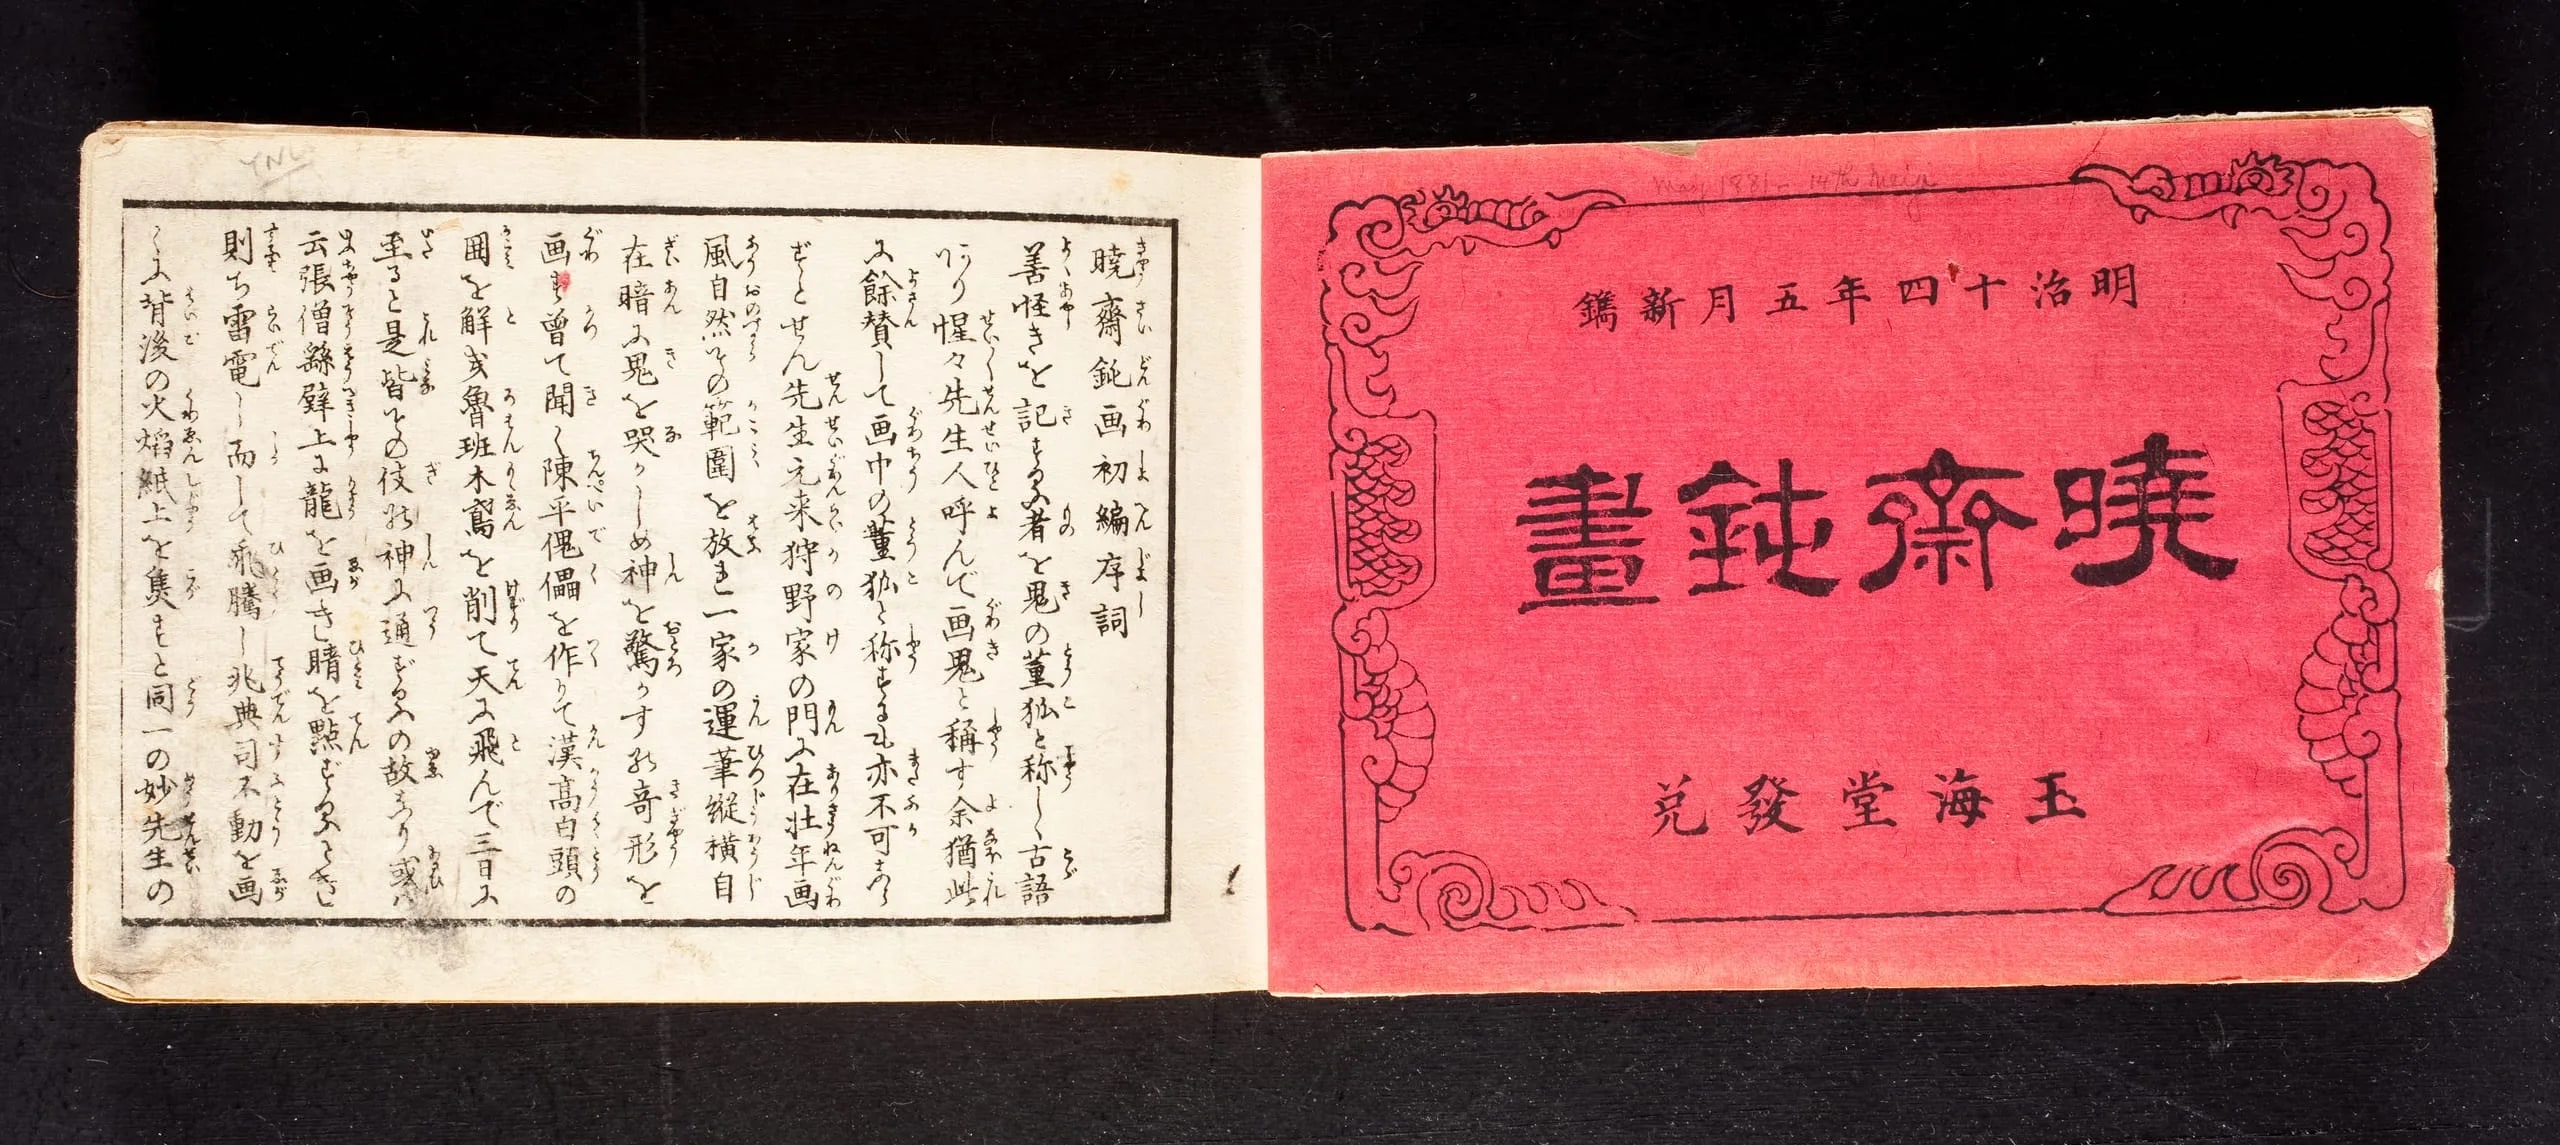 May 1881 - 14th Meiji
明治十四年五月新鐫
曉齋鈍畫
玉海堂發兌
YNL
暁齋鈍画初編序詞
善怪きを記する者を鬼の董狐と称し古語
惺々先生人呼んで画鬼と稱す余猶此
に餘賛して画中の董狐と称するも亦不可
せん先生元来狩野家の門に在壮年画
風自然その範圍を放れ一家の運筆縦横自
在暗に鬼を哭かしめ神を驚かす奇形を
画す曽て聞く陳平傀儡を作りて漢高白頭の
圍を解き魯班木鳶を削て天に飛んで三日に
至ると是皆その伎神に通ずるの故なり或は
云張僧繇壁上に龍を画き睛を點ずる
則ち雷電し而して飛騰し兆典司不動を画
に背後の火焔紙上を
と同一の妙先生の